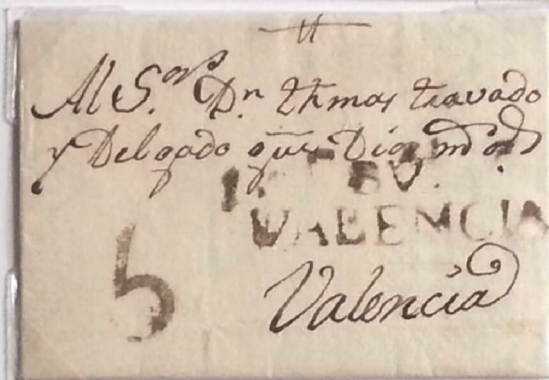 Al S.or Dn thmas travado
y Delgado que Dios
VALENCIA
6
Valencia